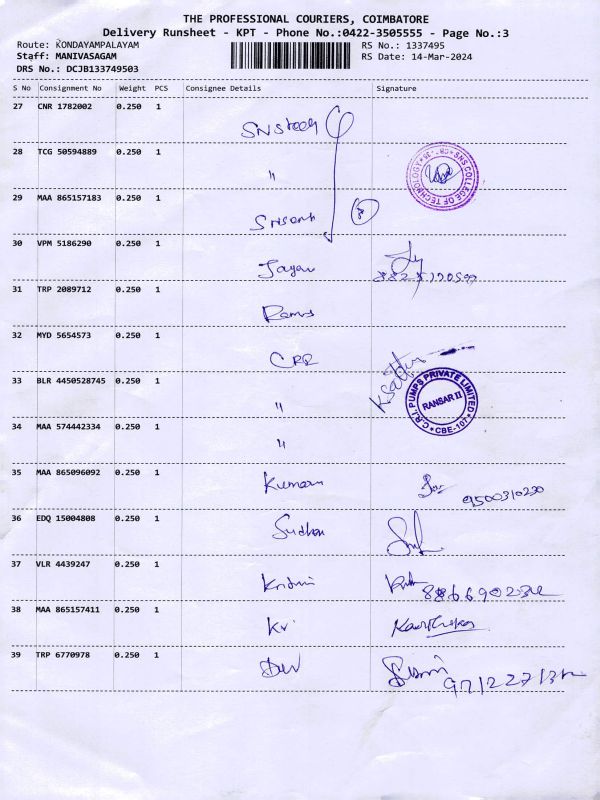 THE PROFESSIONAL COURIERS, COIMBATORE
Delivery Runsheet - KPT - Phone No.:0422-3505555 - Page No.:3
Route: KONDAYAMPALAYAM RS No.: 1337495
Staff: MANIVASAGAM RS Date: 14-Mar-2024
DRS No.: DCJB133749503
S No Consignment No Weight PCS Consignee Details Signature
27 CNR 1782002 0.250 1
28 TCG 50594889 0.250 1 "
SNS COLLEGE OF TECHNOLOGY
29 MAA 865157183 0.250 1
30 VPM 5186290 0.250 1 Jagan
31 TRP 2089712 0.250 1 Ramus
32 MYD 5654573 0.250 1 CRR
33 BLR 4450528745 0.250 1 "
C.R.I. PUMPS PRIVATE LIMITED
RANSAR II
CBE-107
34 MAA 574442334 0.250 1 "
35 MAA 865096092 0.250 1 Kumar 9500310220
36 EDQ 15004808 0.250 1 Sudhan
37 VLR 4439247 0.250 1
38 MAA 865157411 0.250 1 Kri
39 TRP 6770978 0.250 1 Dev